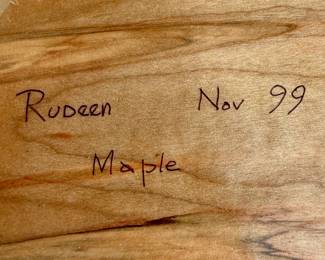 Rudeen Nov 99
Maple